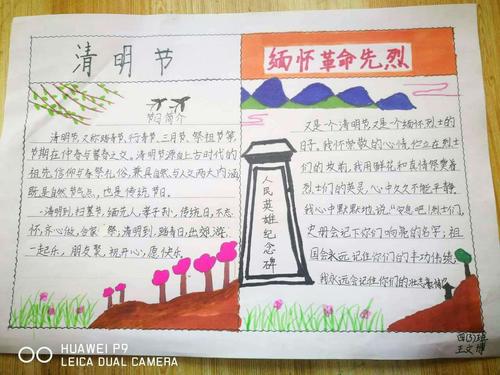 清明节
节日简介
清明节,又称踏青节、行青节、三月节、祭祖节等,
节期在仲春与暮春之交。清明节源自上古时代的
祖先信仰与春祭礼俗,兼具自然与人文两大内涵
既是自然节气点,也是传统节日。
清明到,扫墓景,缅先人,
传统日,不忘
怀,齐心做,合家
祭,清明到,踏春日,出郊游,
一起乐,朋友聚,祝开心,愿快乐
缅怀革命先烈
又是一个清明节又是一个缅怀烈士的
日子,我怀崇敬的心情,伫立在烈士
们的坟前,我用鲜花和真情祭奠着
烈士们的英灵,心中久久不能平静
我心中默默地说:"安息吧!烈士们,
史册会记下你们响亮的名字,祖
国会永远记住你们的丰功伟绩
我永远会记住你们的壮志豪情
人民英雄纪念碑
四(3)班
王文博
HUAWEI P9
LEICA DUAL CAMERA